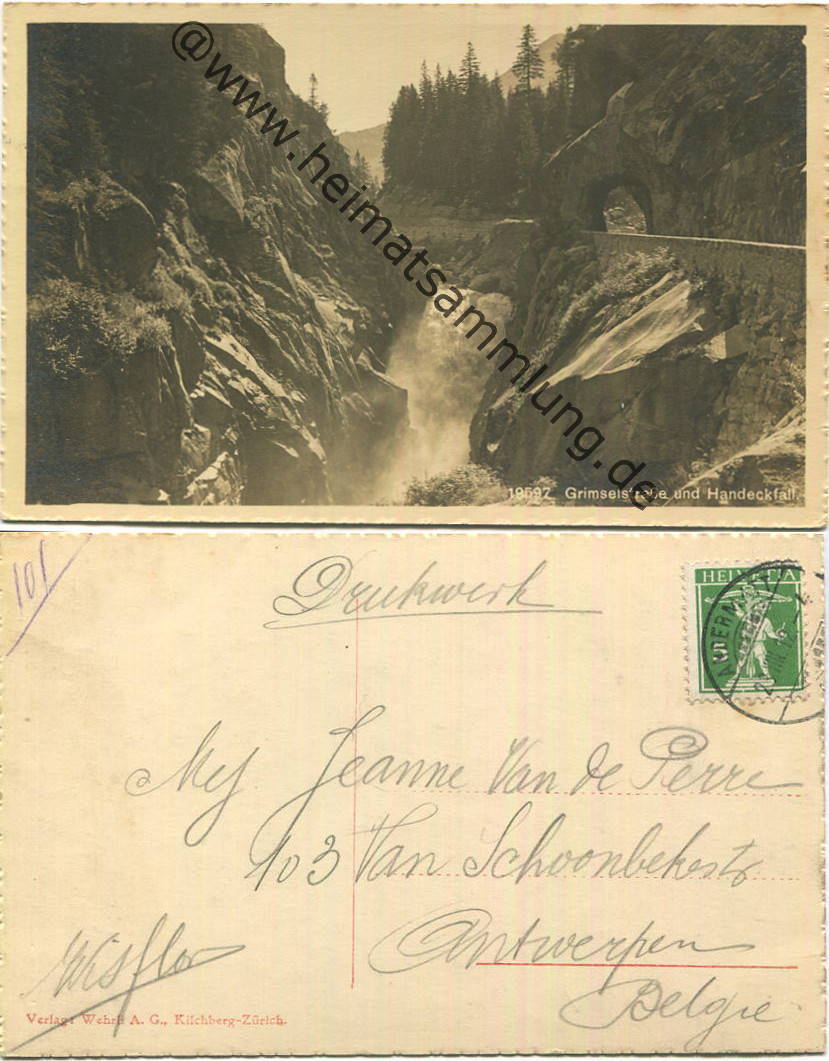 @www.heimatsammlung.de
19597 Grimselstraße und Handeckfall.
101
Drukwerk
HELVETIA
ANDERMATT
Mej Jeanne Van de Perre
103 Van Schoonbekestr
Antwerpen
Belgie
Verlag: Wehrli A. G., Kilchberg-Zürich.